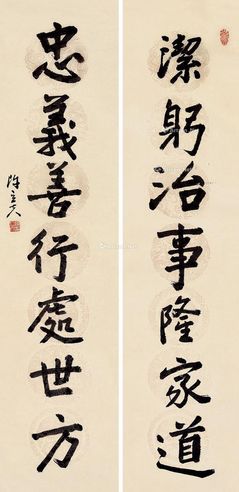 潔躬治事隆家道
忠義善行處世方
陈立夫